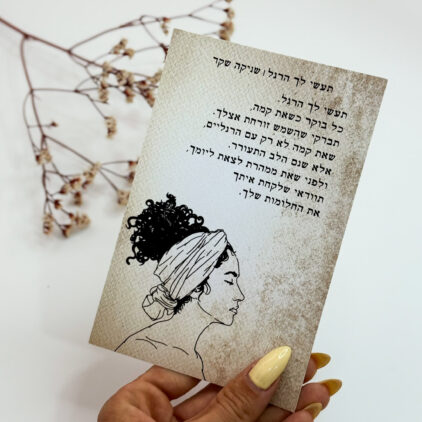 תעשי לך הרגל | שניקה שקד
תעשי לך הרגל,
כל בוקר כשאת קמה,
תבדקי שהשמש זורחת אצלך.
שאת קמה לא רק עם הרגליים,
אלא שגם הלב התעורר.
ולפני שאת ממהרת לצאת ליומך,
תוודאי שלקחת איתך
את החלומות שלך.